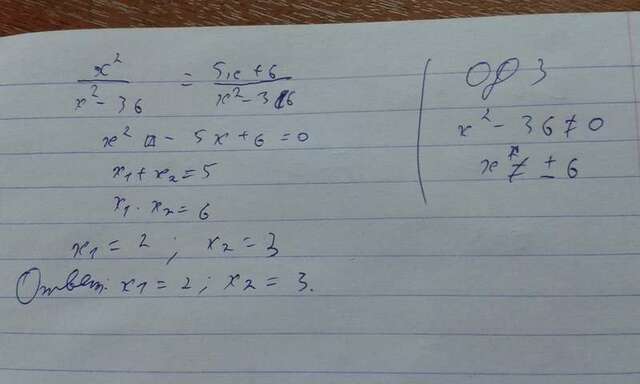 x²/(x² - 36) = (5x + 6)/(x² - 36)
x² - 5x + 6 = 0
x₁ + x₂ = 5
x₁ · x₂ = 6
x₁ = 2 ; x₂ = 3
Ответ: x₁ = 2 ; x₂ = 3.
ОДЗ
x² - 36 ≠ 0
x ≠ ± 6